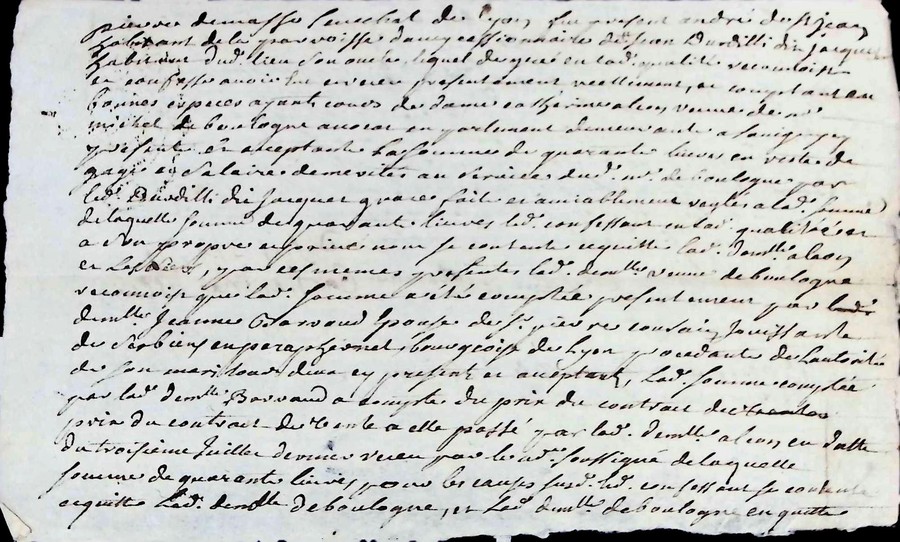 pierre demasso senechal de Lyon fut present andré du st jean
habitant de la parroisse cessionnaire de Jean Durdilli dit jacquet
habitant dud. lieu son oncle, lequel de gré en lad. qualité reconnoist
et confesse avoir eu et receu presentement reellement, et comptant en
bonnes especes ayant cours de dame catherine alcon veuve de mr
michel de boulogne avocat en parlement demeurante a
presente et acceptante La somme de quarante livres en reste de
gages et salaires merités au service dud. mr. de boulogne par
led. Durdilli dit Jacquet grace fait et amiablement reglés a lad. somme
de laquelle somme de quarante livres led. confessant en lad. qualité et
a son propre et privé nom se contente et quitte lad. demlle alcon
et Les siens, par ces mêmes presentes lad. demlle veuve de boulogne
reconnoist que lad. somme a été comptée presentement par
demlle. Jeanne Barraud Epouse de sr. pierre cousin Jouissante
de ses biens en paraphernal, bourgeoise de Lyon procedante de L'autorité
de son mari cy present et acceptant, lad. somme comptée
par lad. demlle Barraud a compte du prix du contrat de
prix du contrat de vente a elle passé par lad. demlle. alcon en datte
du troisieme Juillet dernier receu par le nore. soussigné de laquelle
somme de quarante livres pour les causes susd. led. confessant se contente
et quitte Lad. demlle deboulogne, et Lad. demlle deboulogne en quitte